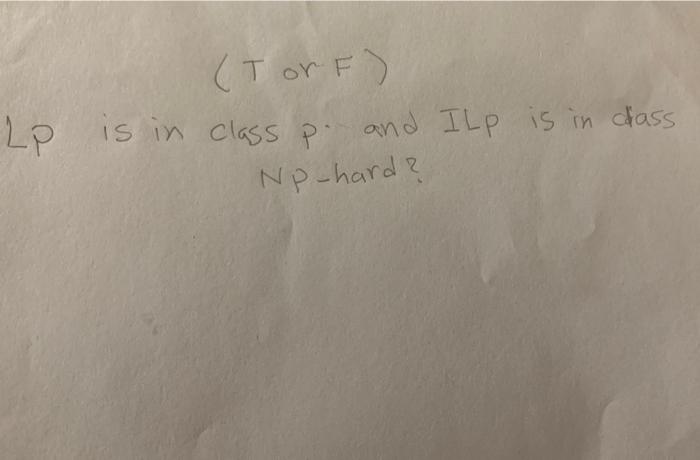 (T or F)
Lp is in class p. and ILp is in class
Np-hard?